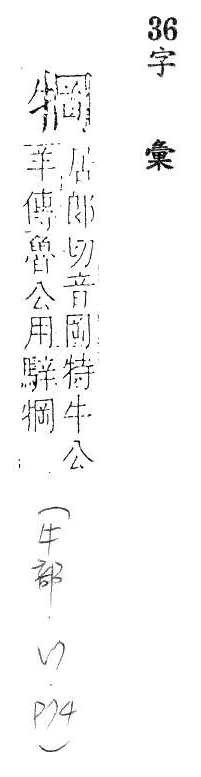 36
字彙
犅
居郎切音岡特牛公
羊傳魯公用騂犅
(牛部. P74)